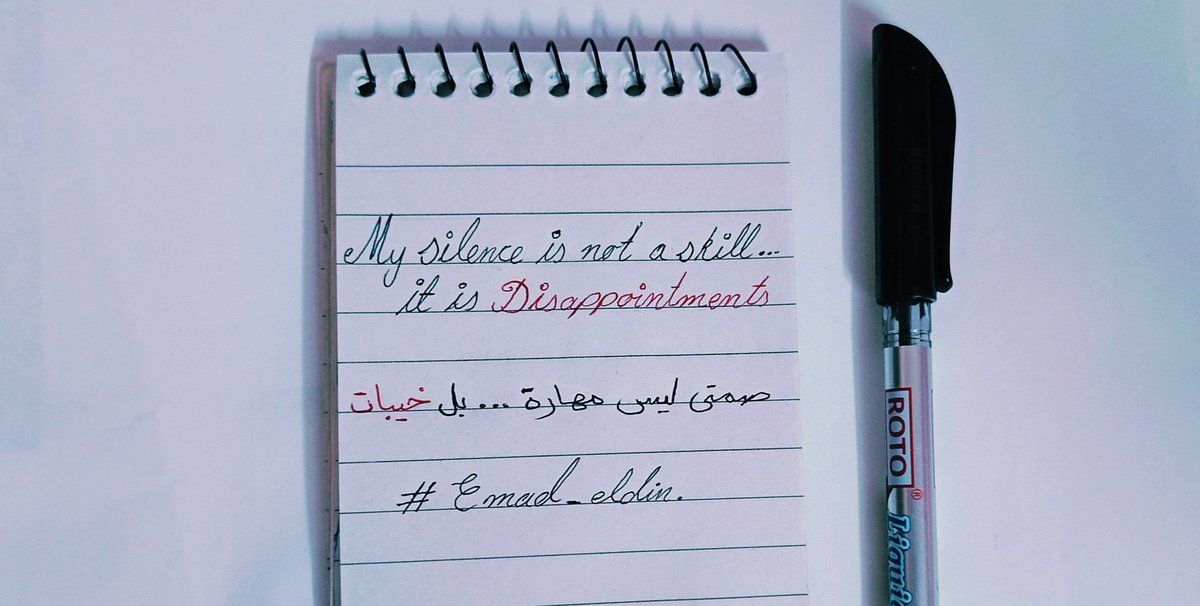 My silence is not a skill...
it is Disappointments
صمتى ليس مهارة ... بل خيبات
# Emad_eldin.
ROTO®